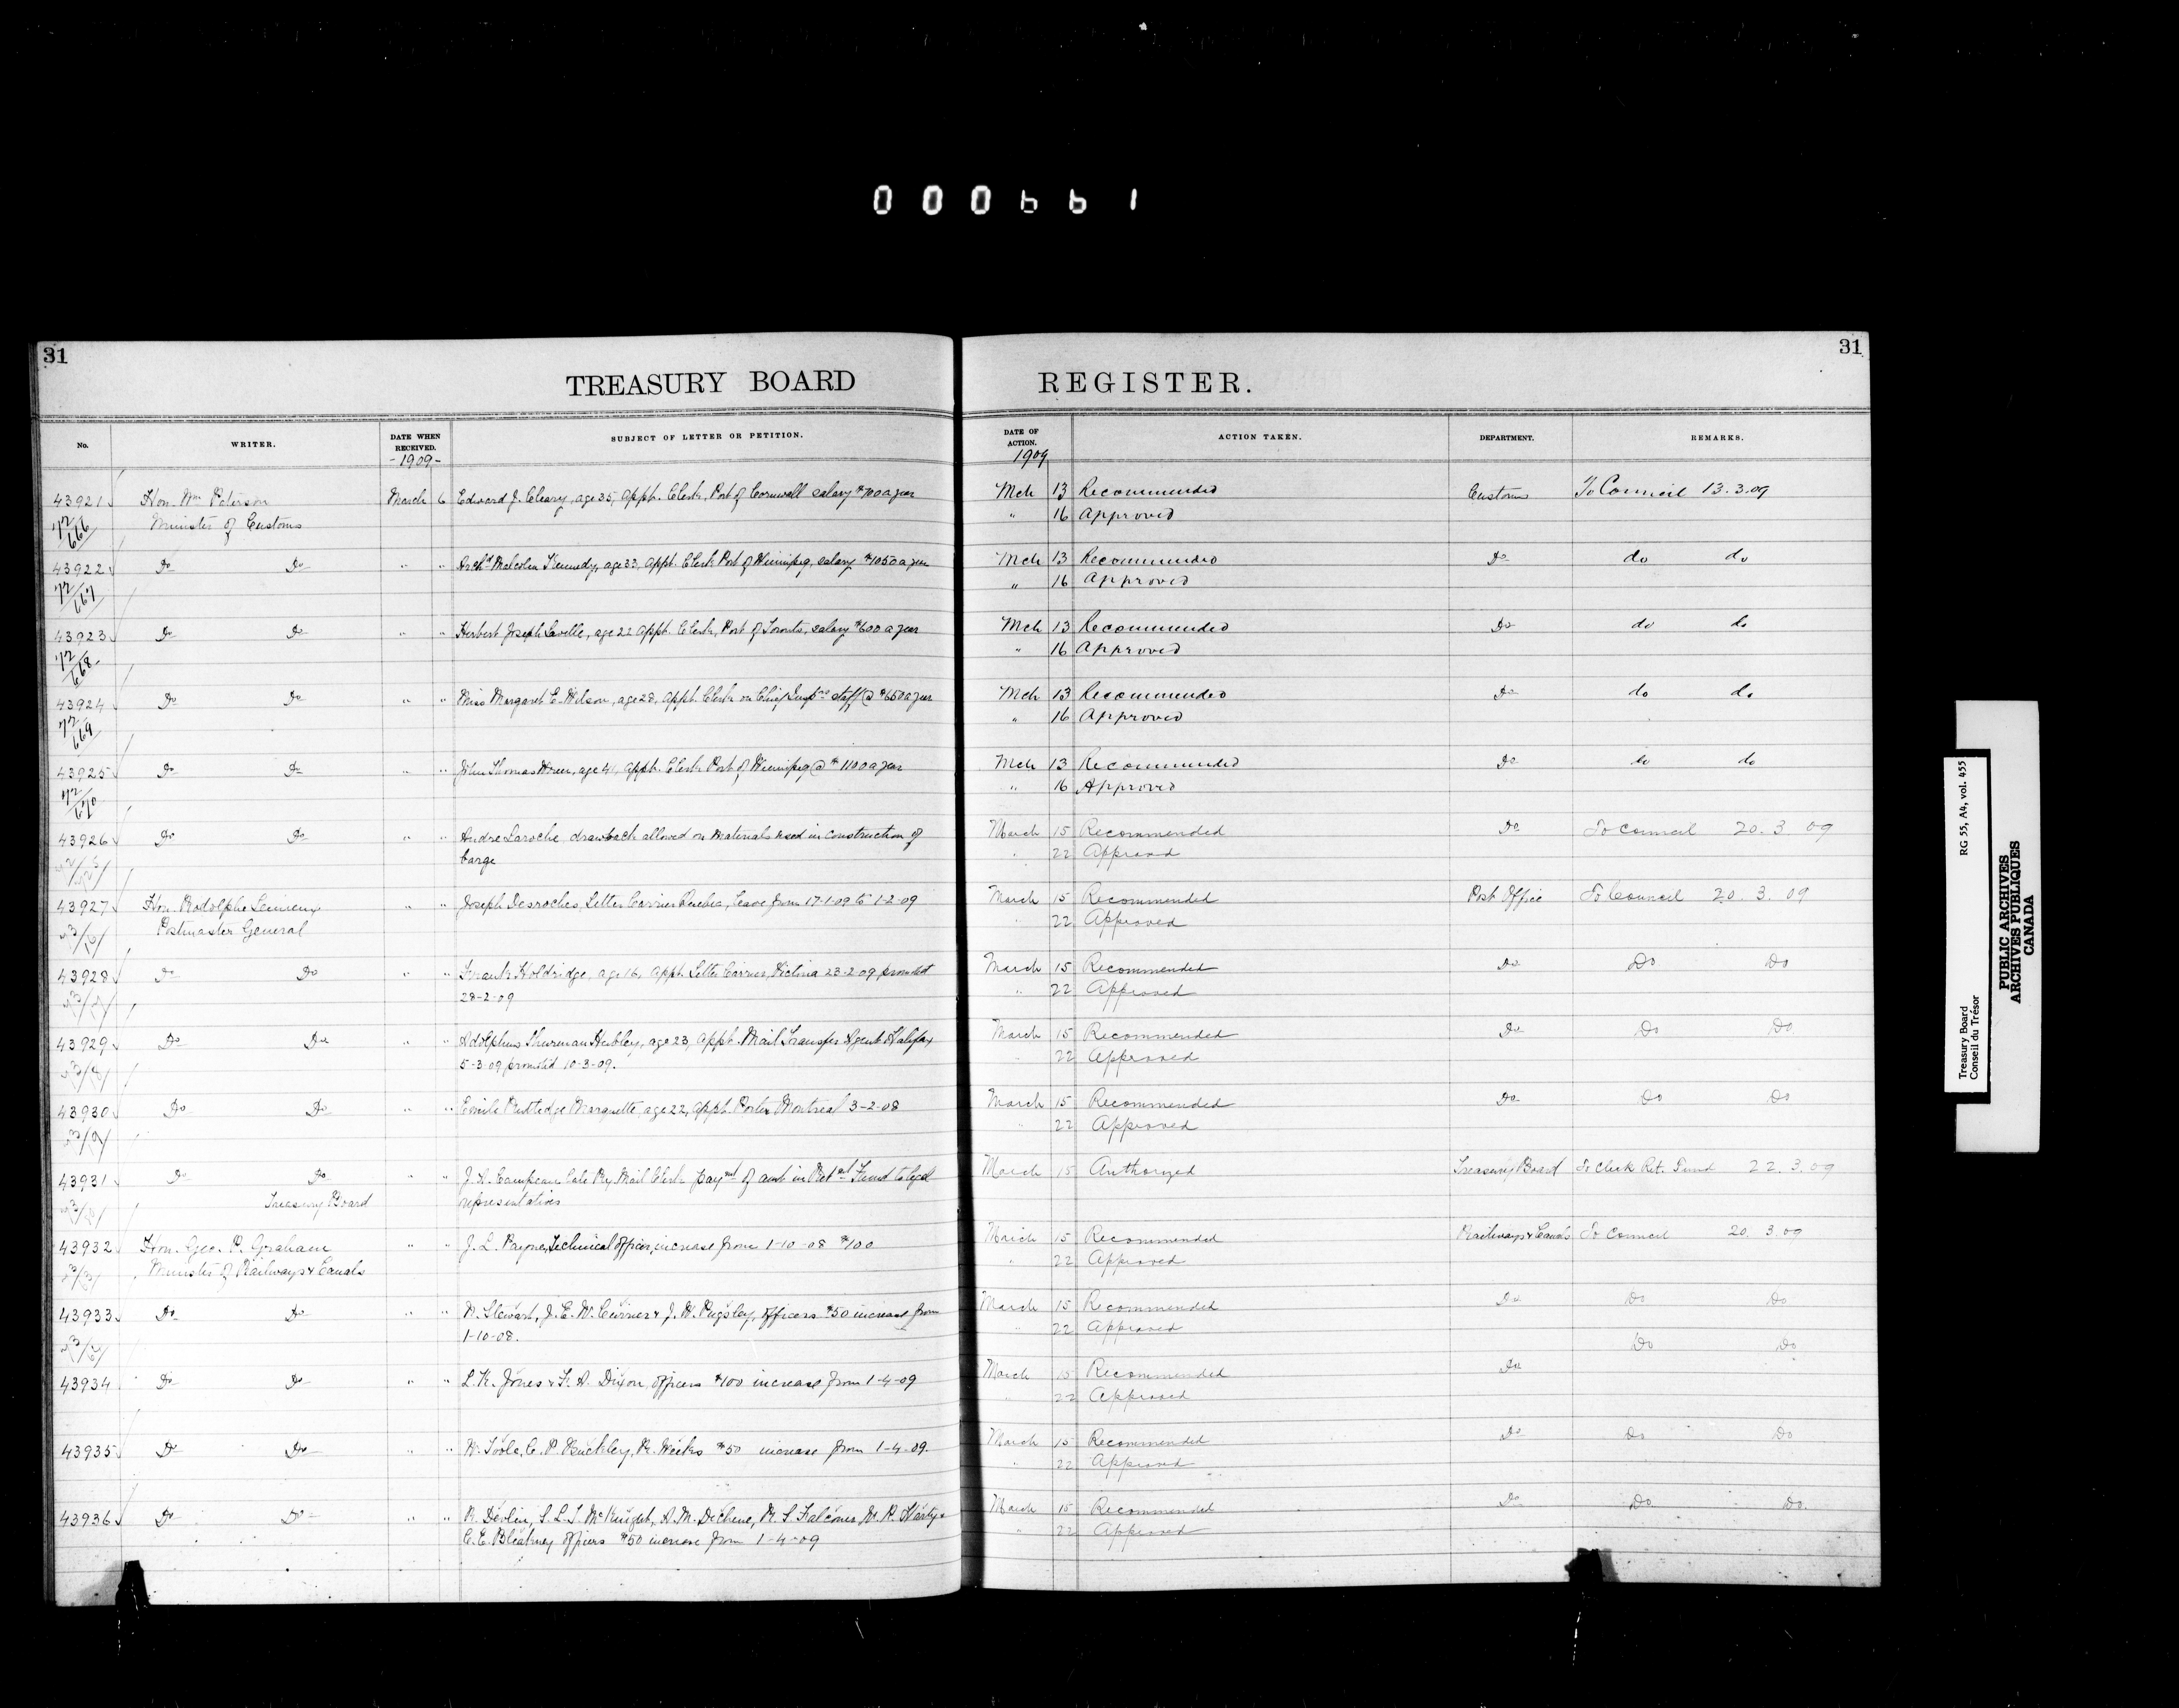 000661
31
31
TREASURY BOARD REGISTER.
No. WRITER. DATE WHEN RECEIVED. SUBJECT OF LETTER OR PETITION. DATE OF ACTION. ACTION TAKEN. DEPARTMENT. REMARKS.
-1909- 1909
43921 Hon. Wm Paterson March 6 Edward J. Cleary, age 35, appt. Clerk, Port of Cornwall salary $700 a year Mch 13 Recommended Customs To Council 13.3.09
72/666 Minister of Customs " 16 Approved
43922 Do Do " " Archd Malcolm Kennedy, age 33, appt. Clerk Port of Winnipeg, salary $1050 a year Mch 13 Recommended Do do do
72/667 " 16 Approved
43923 Do Do " " Herbert Joseph Lavelle, age 22 appt. Clerk, Port of Toronto, salary $600 a year Mch 13 Recommended Do do do
72/668 " 16 Approved
43924 Do Do " " Miss Margaret E. Wilson, age 28, appt. Clerk on Chief staff @ $650 a year Mch 13 Recommended Do do do
72/669 " 16 Approved
43925 Do Do " " John Thomas age 41, appt. Clerk Port of Winnipeg @ $1100 a year Mch 13 Recommended Do do do
72/670 " 16 Approved
43926 Do Do " " Andre Laroche, drawback allowed on materials used in construction of March 15 Recommended Do To Council 20.3 09
barge " 22 Approved
43927 Hon. Rodolphe Lemieux " " Joseph Desroches, Letter Carrier Quebec, leave from 17-1-09 to 1-2-09 March 15 Recommended Post Office To Council 20.3.09
Postmaster General " 22 Approved
43928 Do Do " " Frank Holdridge, age 16, appt. Letter Carrier, Victoria 23-2-09 promoted March 15 Recommended Do Do Do
28-2-09 " 22 Approved
43929 Do Do " " Adolphus Thurman Hubley, age 23, appt. Mail Transfer Agent Halifax March 15 Recommended Do Do Do
5-3-09 promoted 10-3-09. " 22 Approved
43930 Do Do " " Emile Rutledge Marquette age 22, appt. Porter Montreal 3-2-08 March 15 Recommended Do Do Do
" 22 Approved
43931 Do Do " " J. A. Campeau late Ry Mail Clerk paymt of amt in Retmt Fund to legal March 15 Authorized Treasury Board To Clerk Ret. Fund 22.3.09
Treasury Board representatives
43932 Hon. Geo. P. Graham " " J. L. Payne, Technical officer, increase from 1-10-08 $100 March 15 Recommended Railways & Canals To Council 20.3.09
Minister of Railways & Canals " 22 Approved
43933 Do Do " " W. Stewart, J. E. W. Currier & J. W. Pugsley, officers $50 increase from March 15 Recommended Do Do Do
1-10-08. " 22 Approved
Do Do
43934 Do Do " " L. K. Jones & F. A. Dixon, officers $100 increase from 1-4-09 March 15 Recommended Do
" 22 Approved
43935 Do Do " " W. Toole, C. P. Buckley, R. Weeks $50 increase from 1-4-09. March 15 Recommended Do Do Do
" 22 Approved
43936 Do Do " " R. Devlin, S. L. T. McKnight, A. M. Dechene, R. S. Falconer, W. R. Hasty & March 15 Recommended Do Do Do.
C. E. Bleakney officers $50 increase from 1-4-09 " 22 Approved
Treasury Board RG 55, A4, vol. 455
Conseil du Trésor
PUBLIC ARCHIVES
ARCHIVES PUBLIQUES
CANADA